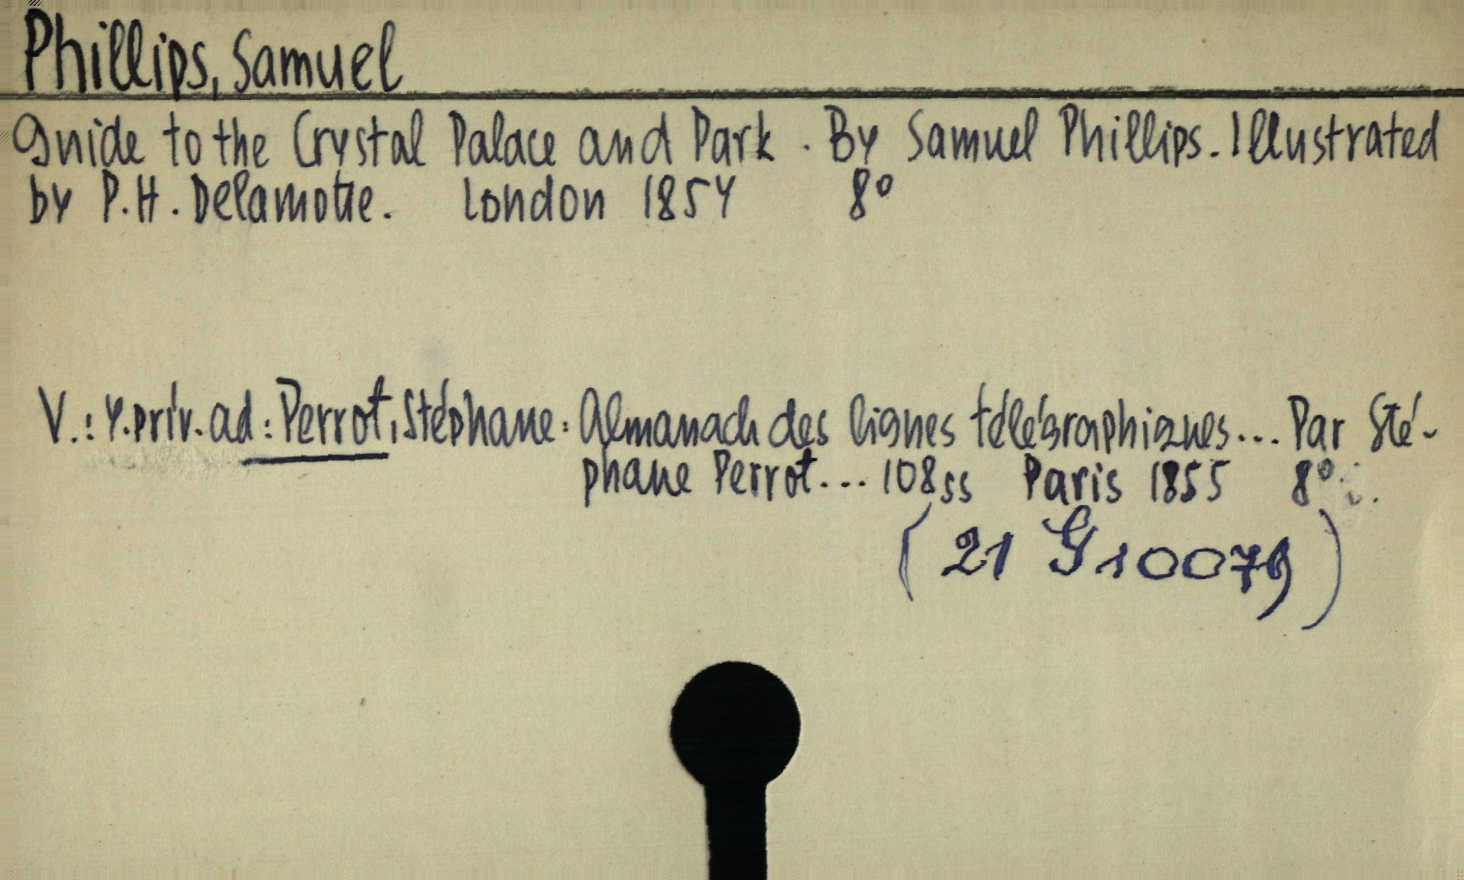 Phillips, Samuel
Guide to the Crystal Palace and Park. By Samuel Phillips. Illustrated
by P.H. Delamotte. London 1854 8°
V.: Y.priv. ad: Perrot, Stéphane: Almanach des lignes télégraphiques... Par Sté-
phane Perrot... 108 ss Paris 1855 8°
(21 G 10079)